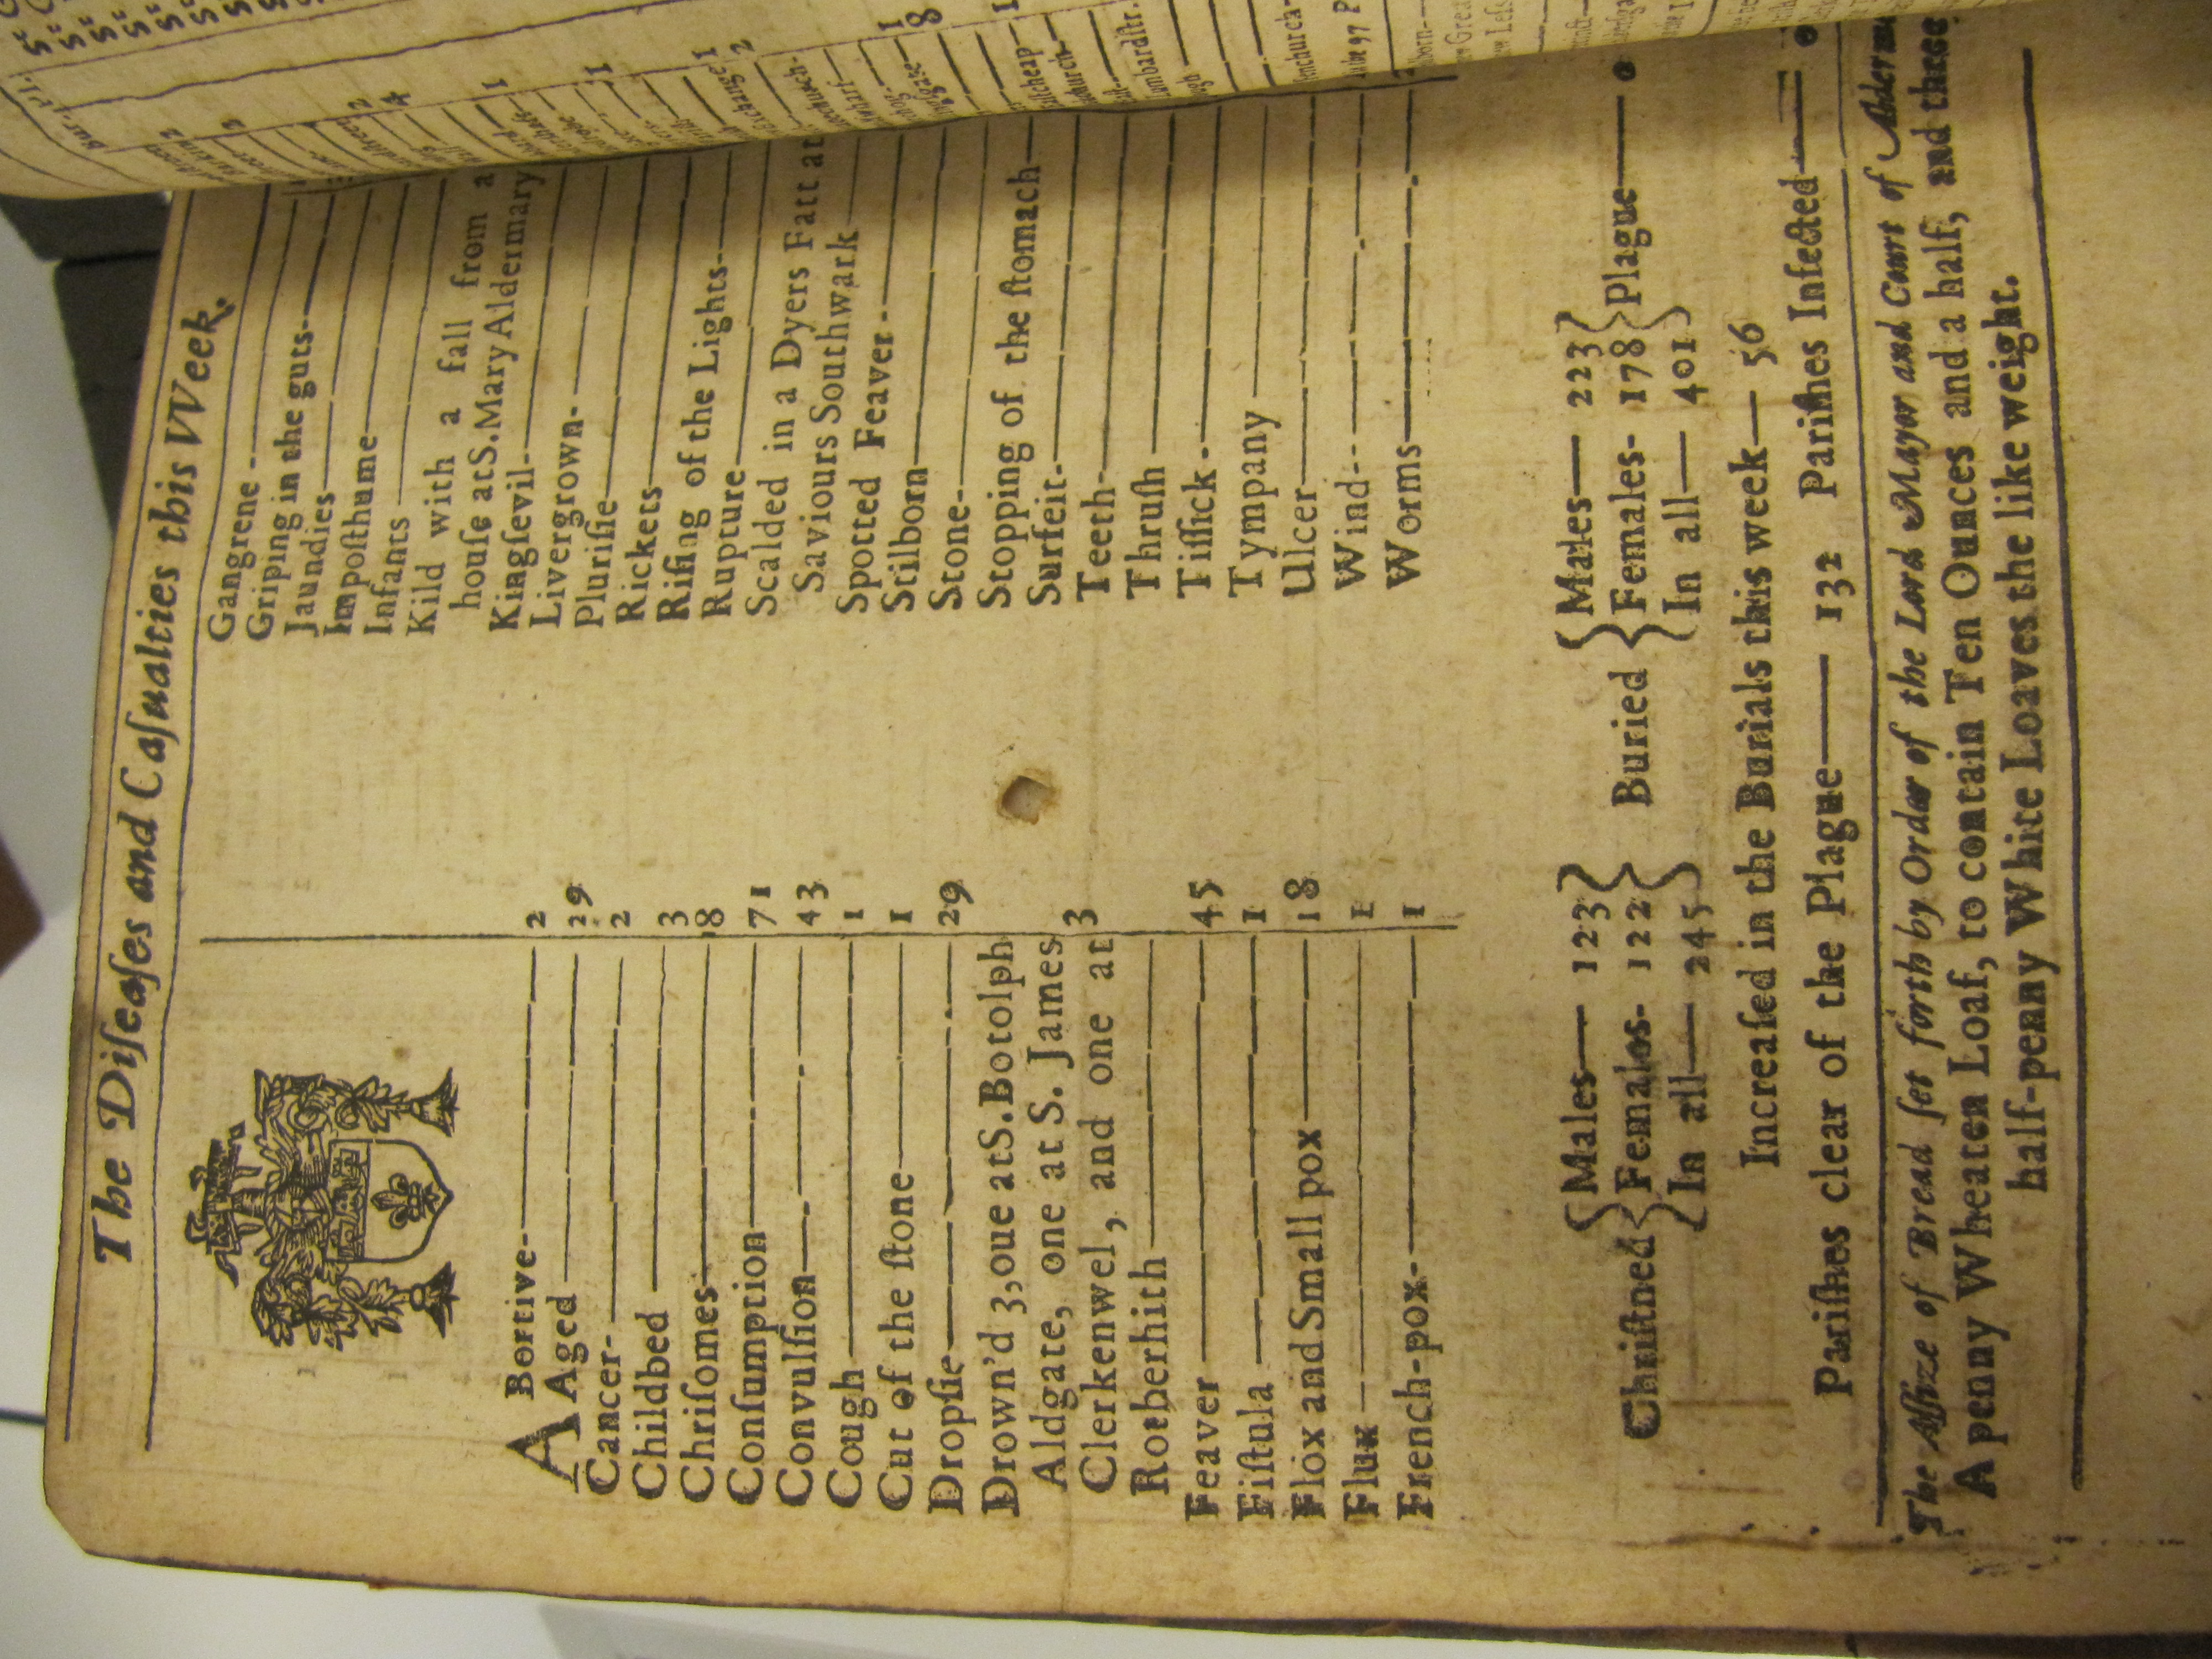 The Diſeaſes and Caſualties this VVeek.
ABortive 2
Aged 29
Cancer 2
Childbed 3
Chriſomes 8
Conſumption 71
Convulſion 43
Cough 1
Cut of the ſtone 1
Dropſie 29
Drown'd 3, oue at S. Botolph
Aldgate, one at S. James
Clerkenwel, and one at 3
Rotherhith
Feaver 45
Fiſtula 1
Flox and Small pox 18
Flux 1
French-pox 1
Gangrene
Griping in the guts
Jaundies
Impoſthume
Infants
Kild with a fall from a
houſe at S. Mary Aldermary
Kingſevil
Livergrown
Pluriſie
Rickets
Riſing of the Lights
Rupture
Scalded in a Dyers Fatt at
Saviours Southwark
Spotted Feaver
Stilborn
Stone
Stopping of the ſtomach
Surfeit
Teeth
Thruſh
Tiſſick
Tympany
Ulcer
Wind
Worms
Chriſtned Males 123 Females 122 In all 245
Buried Males 223 Females 178 In all 401 Plague 0
Increaſed in the Burials this week 56
Pariſhes clear of the Plague 132 Pariſhes Infected 0
The Aſſize of Bread ſet forth by Order of the Lord Mayor and Court of
A penny Wheaten Loaf, to contain Ten Ounces and a half, and three
half-penny White Loaves the like weight.